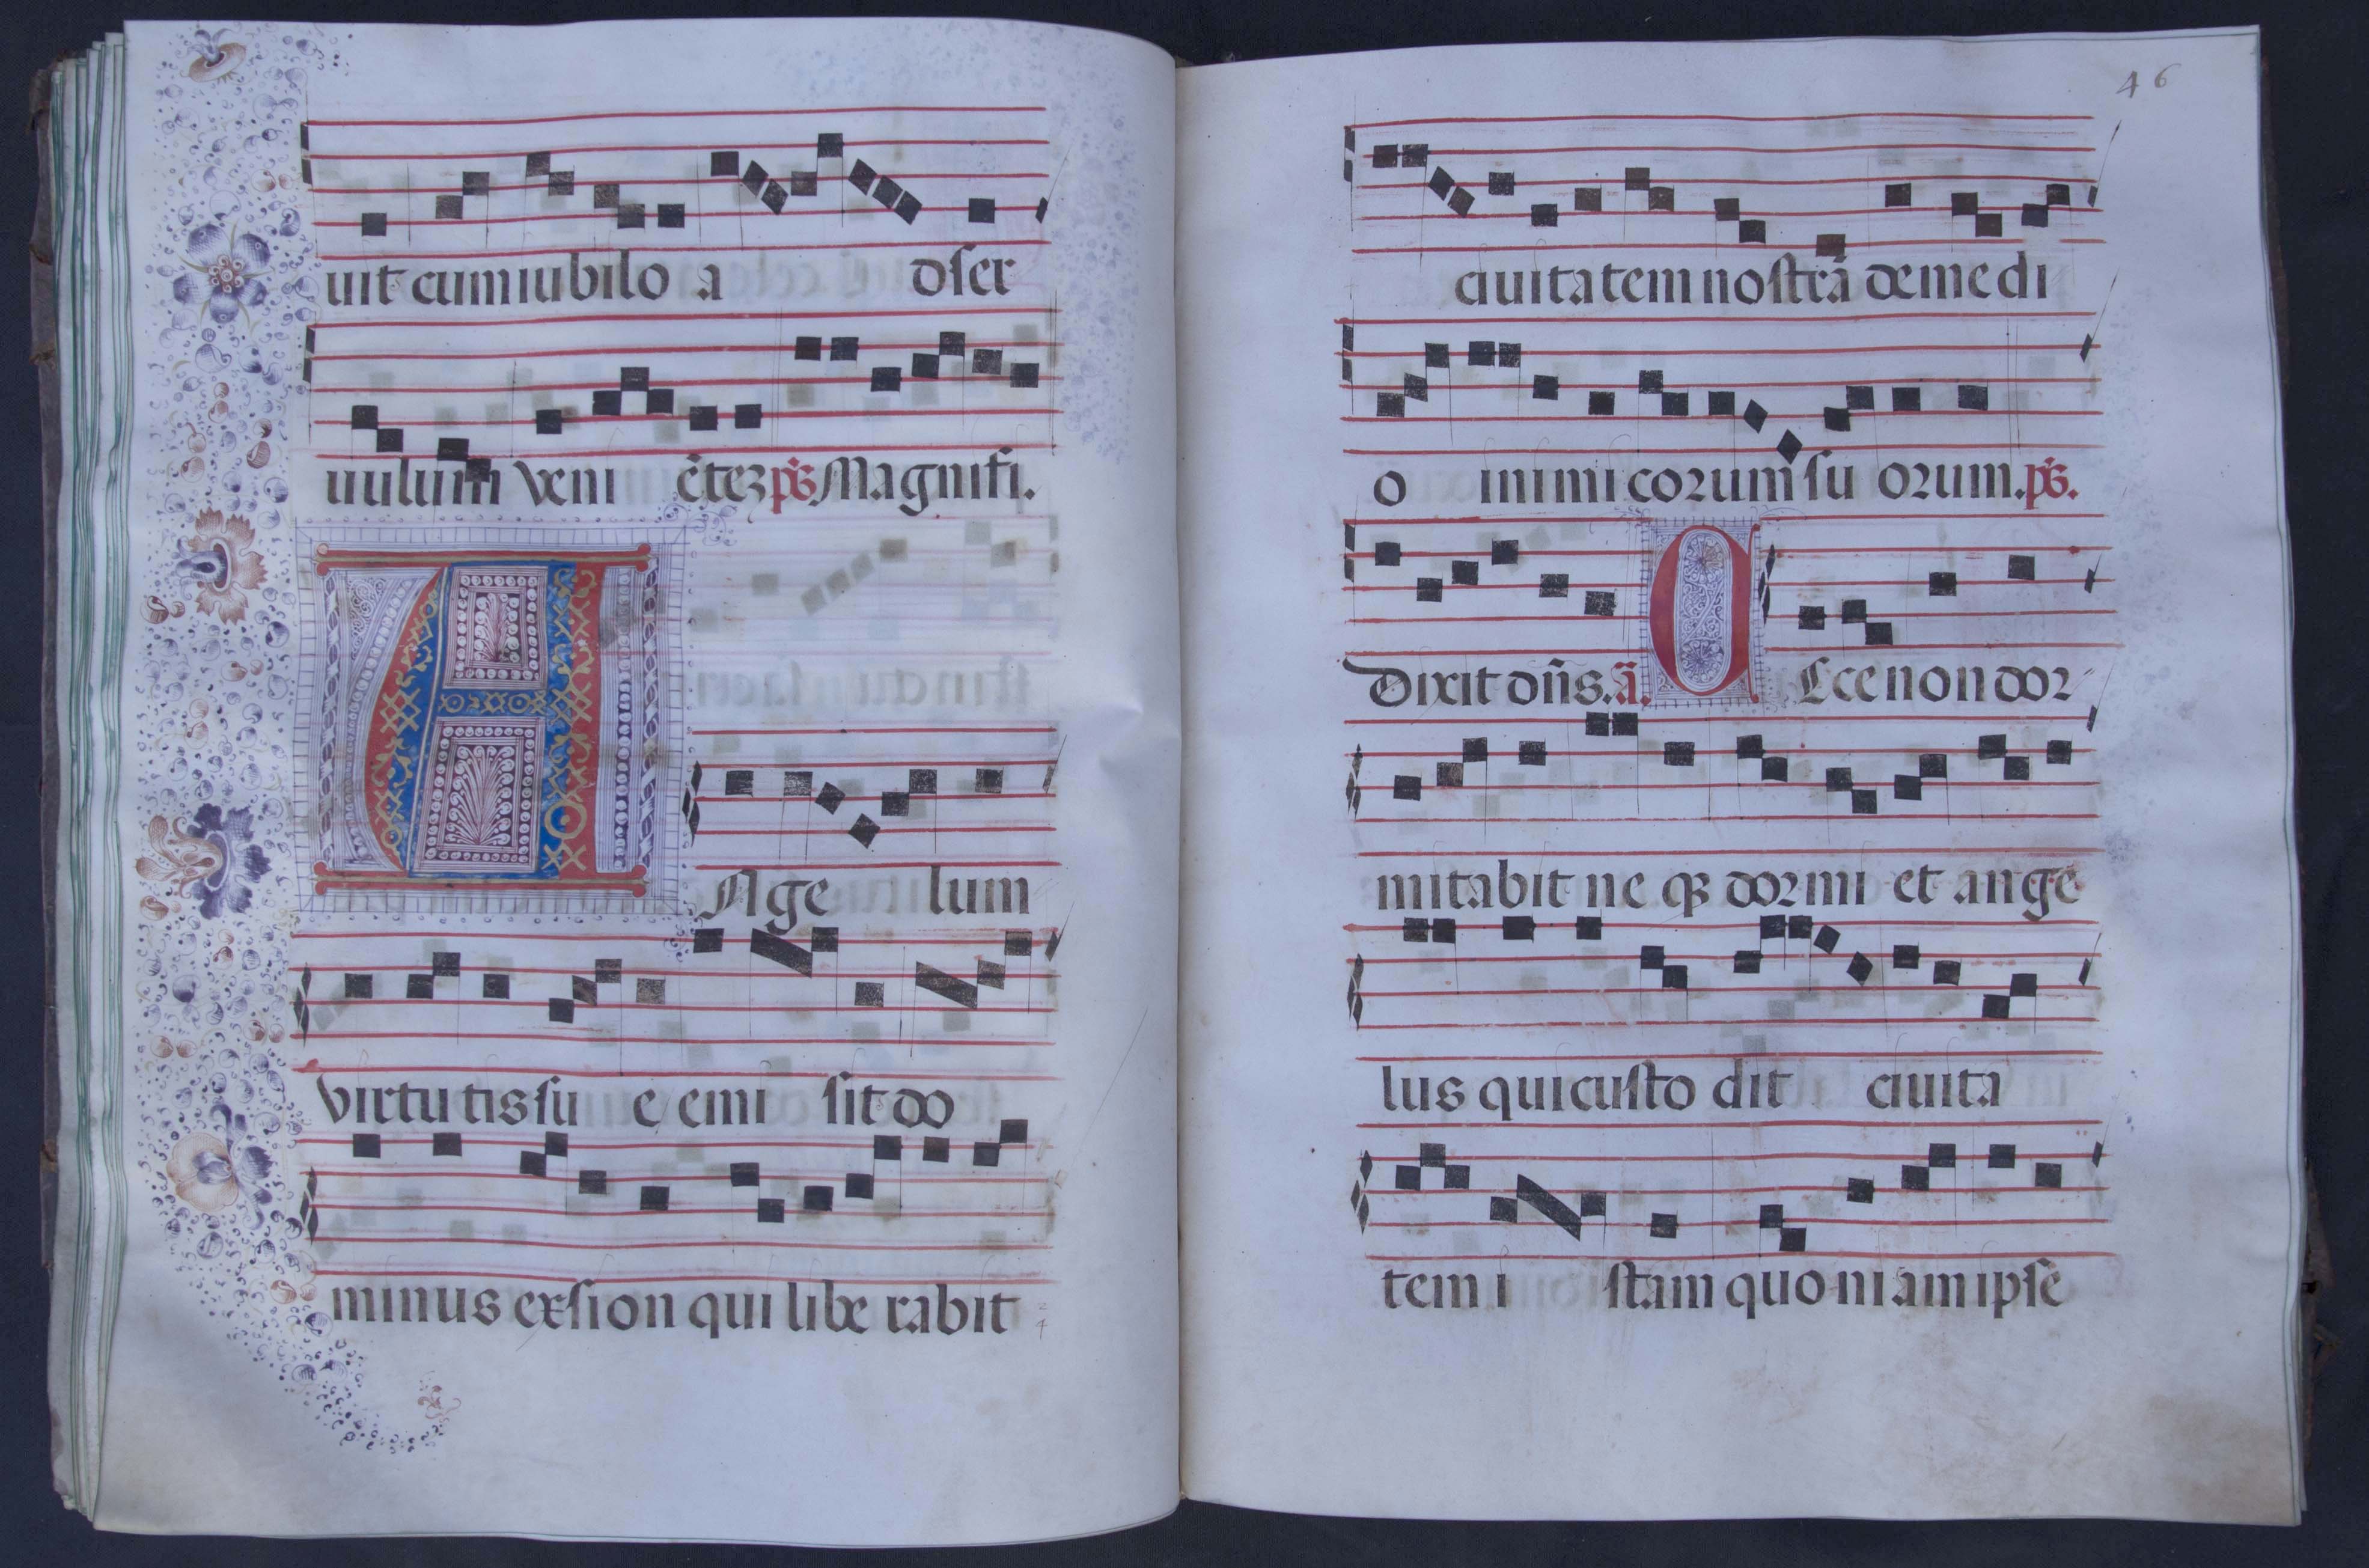 uit cum iubilo a dſer
uulum veni ētez p̄s Magnifi.
A Nge lum
virtutis ſu e emi ſit do
minus ex ſion qui libe rabit
46
ciuitatem noſtrā de medi
o inimicorum ſu orum. p̄s.
Dixit dn̄s. ā. E Cce non dor
mitabit ne qꝫ dormi et ange
lus qui cuſto dit ciuita
tem i ſtam quoniam ipſe